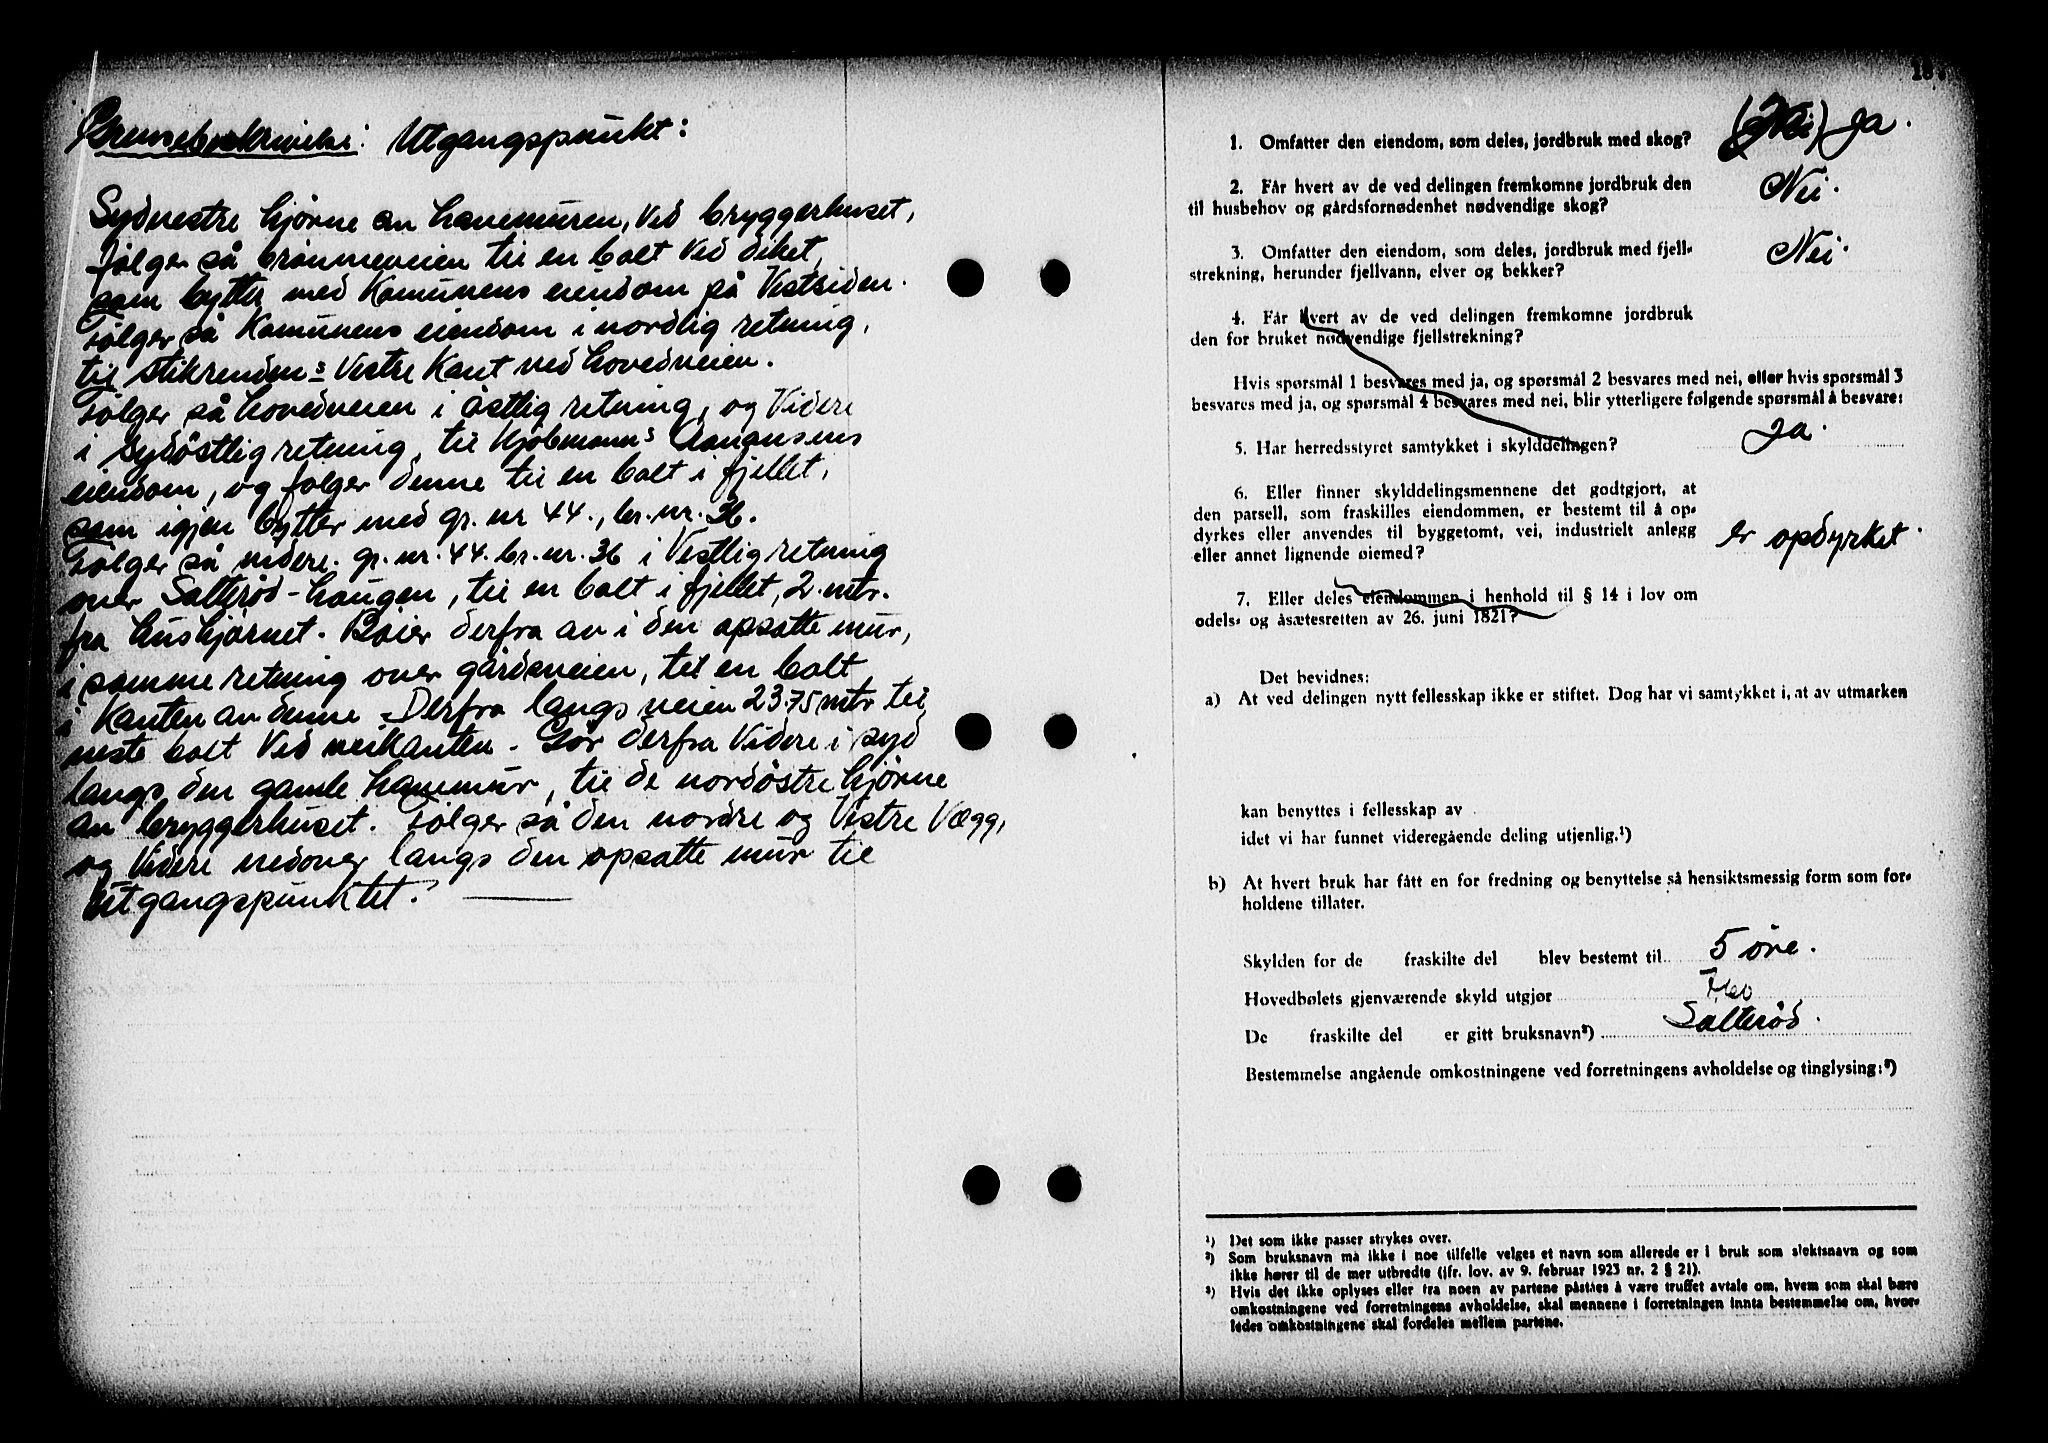 Grensebeskrivelse: Utgangspunkt:
Sydvestre hjørne av havemuren, ved bryggerhuset,
følger så brønnveien til en bolt ved diket,
som bytter med Komunens eiendom på Vestsiden.
Følger så Komunens eiendom i nordlig retning,
til stikrenden's Vestre Kant ved hovedveien.
Følger så hovedveien i östlig retning, og Videre
i sydöstlig retning, til Kjøbmann's Aanonsens
eiendom, og følger denne til en bolt i fjellet,
som igjen bytter med gr. nr 44., br. nr. 36.
Følger så videre. gr. nr. 44. br. nr. 36 i Vestlig retning
over Salterød-haugen, til en bolt i fjellet, 2. mtr.
fra hushjørnet. Bøier derfra av i den opsatte mur,
i samme retning over gårdsveien, til en bolt
i Kanten av denne. Derfra langs veien 23.75 mtr til
neste bolt Ved veikanten. Går derfra Videre i syd
langs den gamle havemur, til de nordöstre hjørne
av bryggerhuset. Følger så den nordre og Vestre Vægg,
og Videre nedover langs den opsatte mur til
utgangspunktet.
1. Omfatter den eiendom, som deles, jordbruk med skog? (Nei) Ja.
2. Får hvert av de ved delingen fremkomne jordbruk den
til husbehov og gårdsfornødenhet nødvendige skog? Nei.
3. Omfatter den eiendom, som deles, jordbruk med fjell-
strekning, herunder fjellvann, elver og bekker? Nei.
4. Får hvert av de ved delingen fremkomne jordbruk
den for bruket nødvendige fjellstrekning?
Hvis spørsmål 1 besvares med ja, og spørsmål 2 besvares med nei, eller hvis spørsmål 3
besvares med ja, og spørsmål 4 besvares med nei, blir ytterligere følgende spørsmål å besvare:
5. Har herredsstyret samtykket i skylddelingen? Ja.
6. Eller finner skylddelingsmennene det godtgjort, at
den parsell, som fraskilles eiendommen, er bestemt til å op-
dyrkes eller anvendes til byggetomt, vei, industrielt anlegg
eller annet lignende øiemed? er opdyrket.
7. Eller deles eiendommen i henhold til § 14 i lov om
odels- og åsætesretten av 26. juni 1821?
Det bevidnes:
a) At ved delingen nytt fellesskap ikke er stiftet. Dog har vi samtykket i, at av utmarken
kan benyttes i fellesskap av
idet vi har funnet videregående deling utjenlig.¹)
b) At hvert bruk har fått en for fredning og benyttelse så hensiktsmessig form som for-
holdene tillater.
Skylden for de fraskilte del blev bestemt til 5 øre.
Hovedbølets gjenværende skyld utgjør
De fraskilte del er gitt bruksnavn²) Salterød.
Bestemmelse angående omkostningene ved forretningens avholdelse og tinglysing:³)
¹) Det som ikke passer strykes over.
²) Som bruksnavn må ikke i noe tilfelle velges et navn som allerede er i bruk som slektsnavn og som
ikke hører til de mer utbredte (jfr. lov. av 9. februar 1923 nr. 2 § 21).
³) Hvis det ikke oplyses eller fra noen av partene påståes å være truffet avtale om, hvem som skal bære
omkostningene ved forretningens avholdelse, skal mennene i forretningen innta bestemmelse om, hvor-
ledes omkostningene skal fordeles mellem partene.